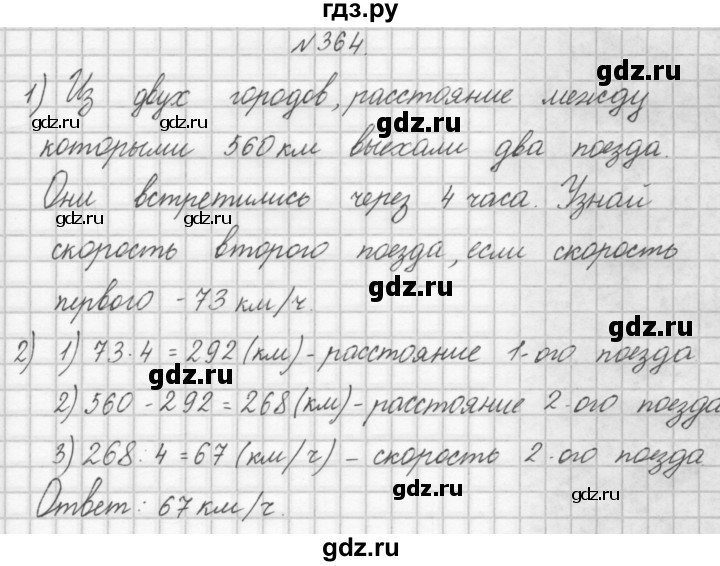 гдз.ру
№364.
1) Из двух городов, расстояние между
gdz.ru gdz.ru gdz.ru
которыми 560 км выехали два поезда.
Они встретились через 4 часа. Узнай
gdz.ru gdz.ru gdz.ru
скорость второго поезда, если скорость
первого - 73 км/ч.
gdz.ru
gdz.ru
2) 1) 73·4=292(км)-расстояние 1-ого поезда
gdz.ru
2) 560-292=268(км)-расстояние 2-ого поезда
3) 268:4=67(км/ч)-скорость 2-ого поезда
Ответ: 67 км/ч.
gdz.ru gdz.ru
gdz.ru